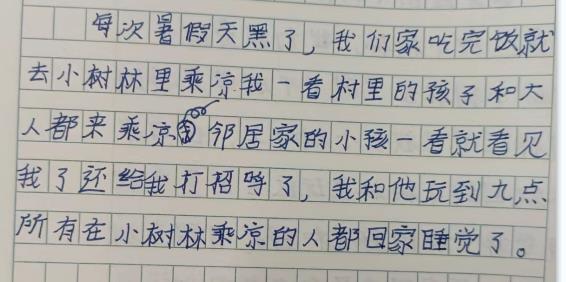 每次暑假天黑了，我们家吃完饭就
去小树林里乘凉我一看村里的孩子和大
人都来乘凉邻居家的小孩一看就看见
我了还给我打招呼了，我和他玩到九点
所有在小树林乘凉的人都回家睡觉了。